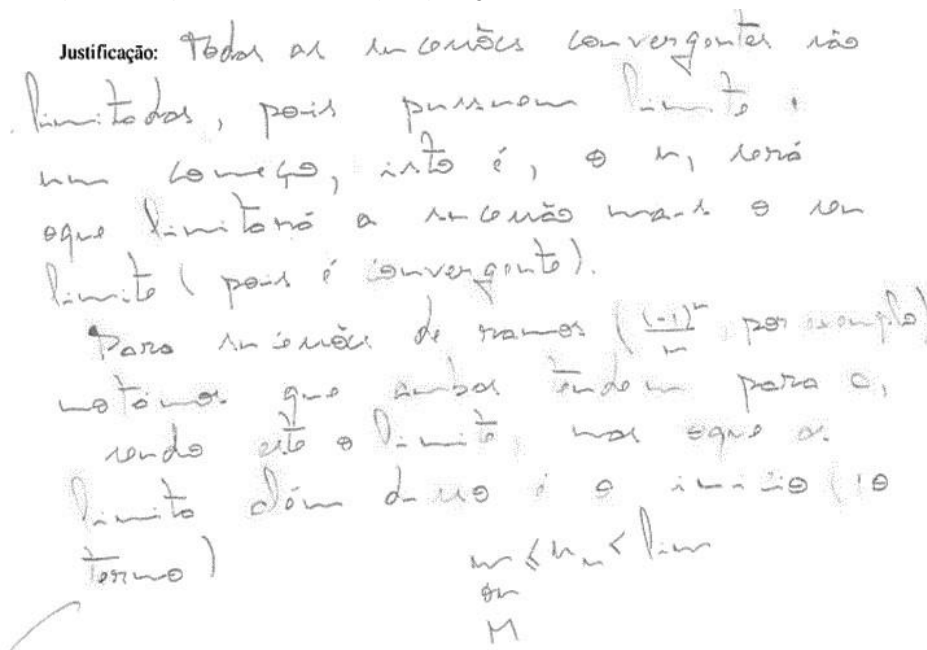 Justificação: Todas as sucessões convergentes são
limitadas, pois possuem limite e
um começo, isto é, o u₁ será
oque limitará a sucessão mais o seu
limite (pois é convergente).
Para sucessões de ramos ((-1)ⁿ/n por exemplo)
notamos que ambos tendem para 0,
sendo este o limite, mas oque os
limita além disso é o inicio (1º
termo)
m ≤ uₙ < lim
ou
M